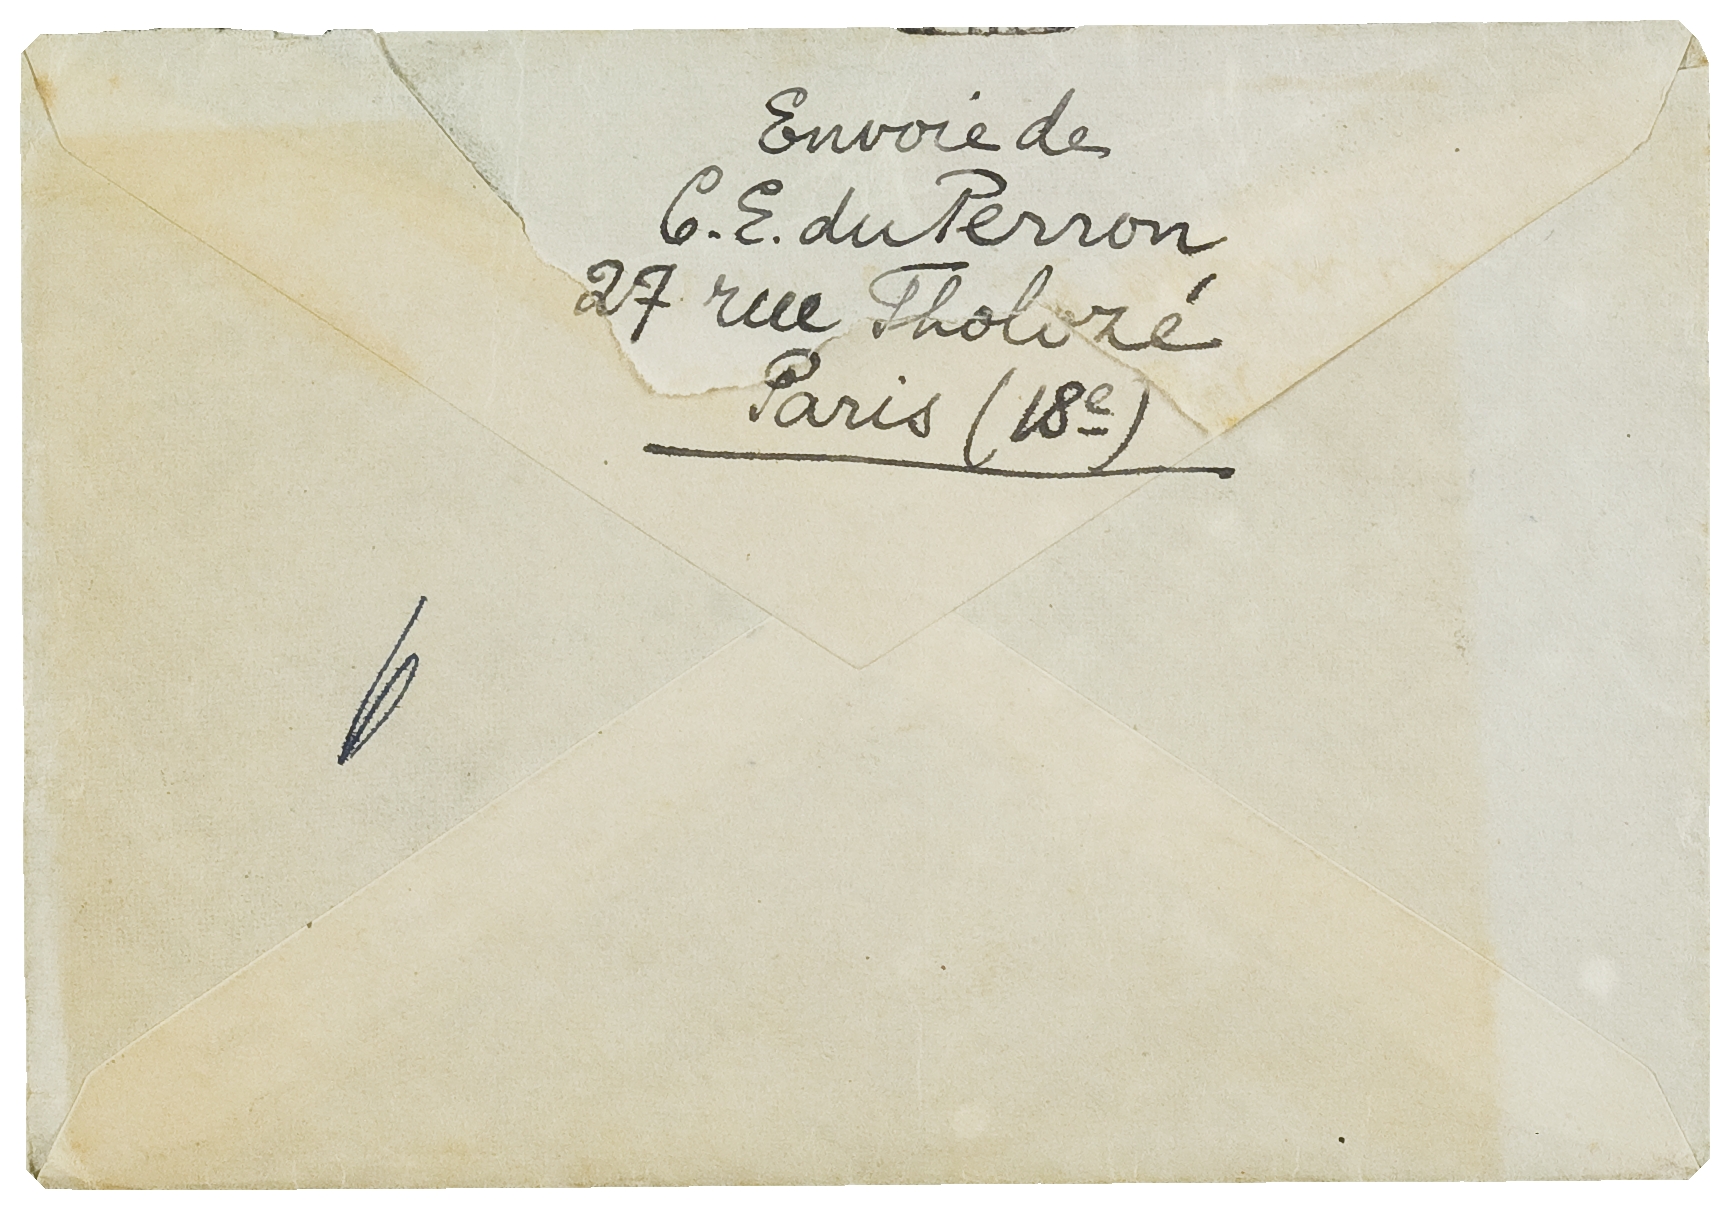 Envoie de
C. E. du Perron
27 rue Tholozé
Paris (18e)